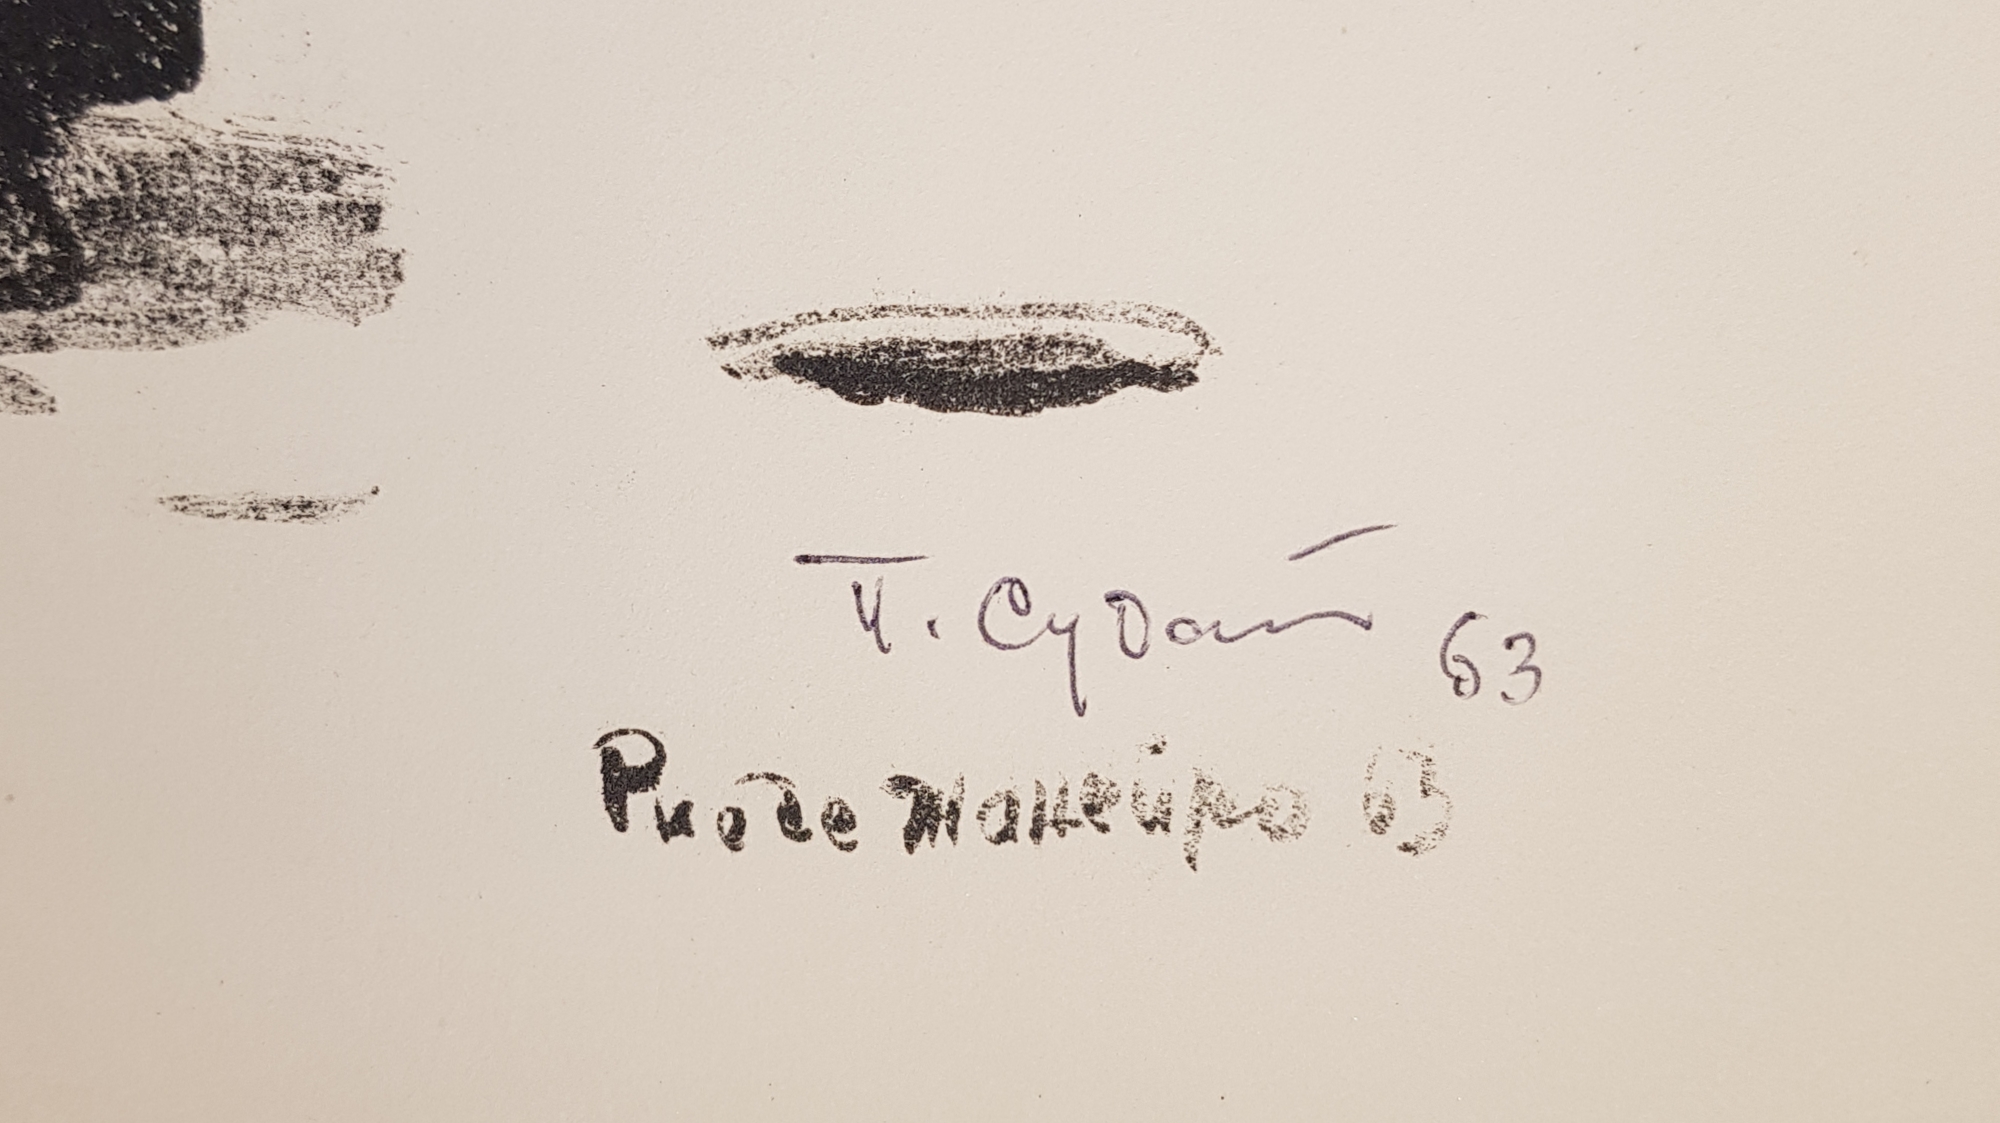 П. Судак 63
Рио де Жанейро 63